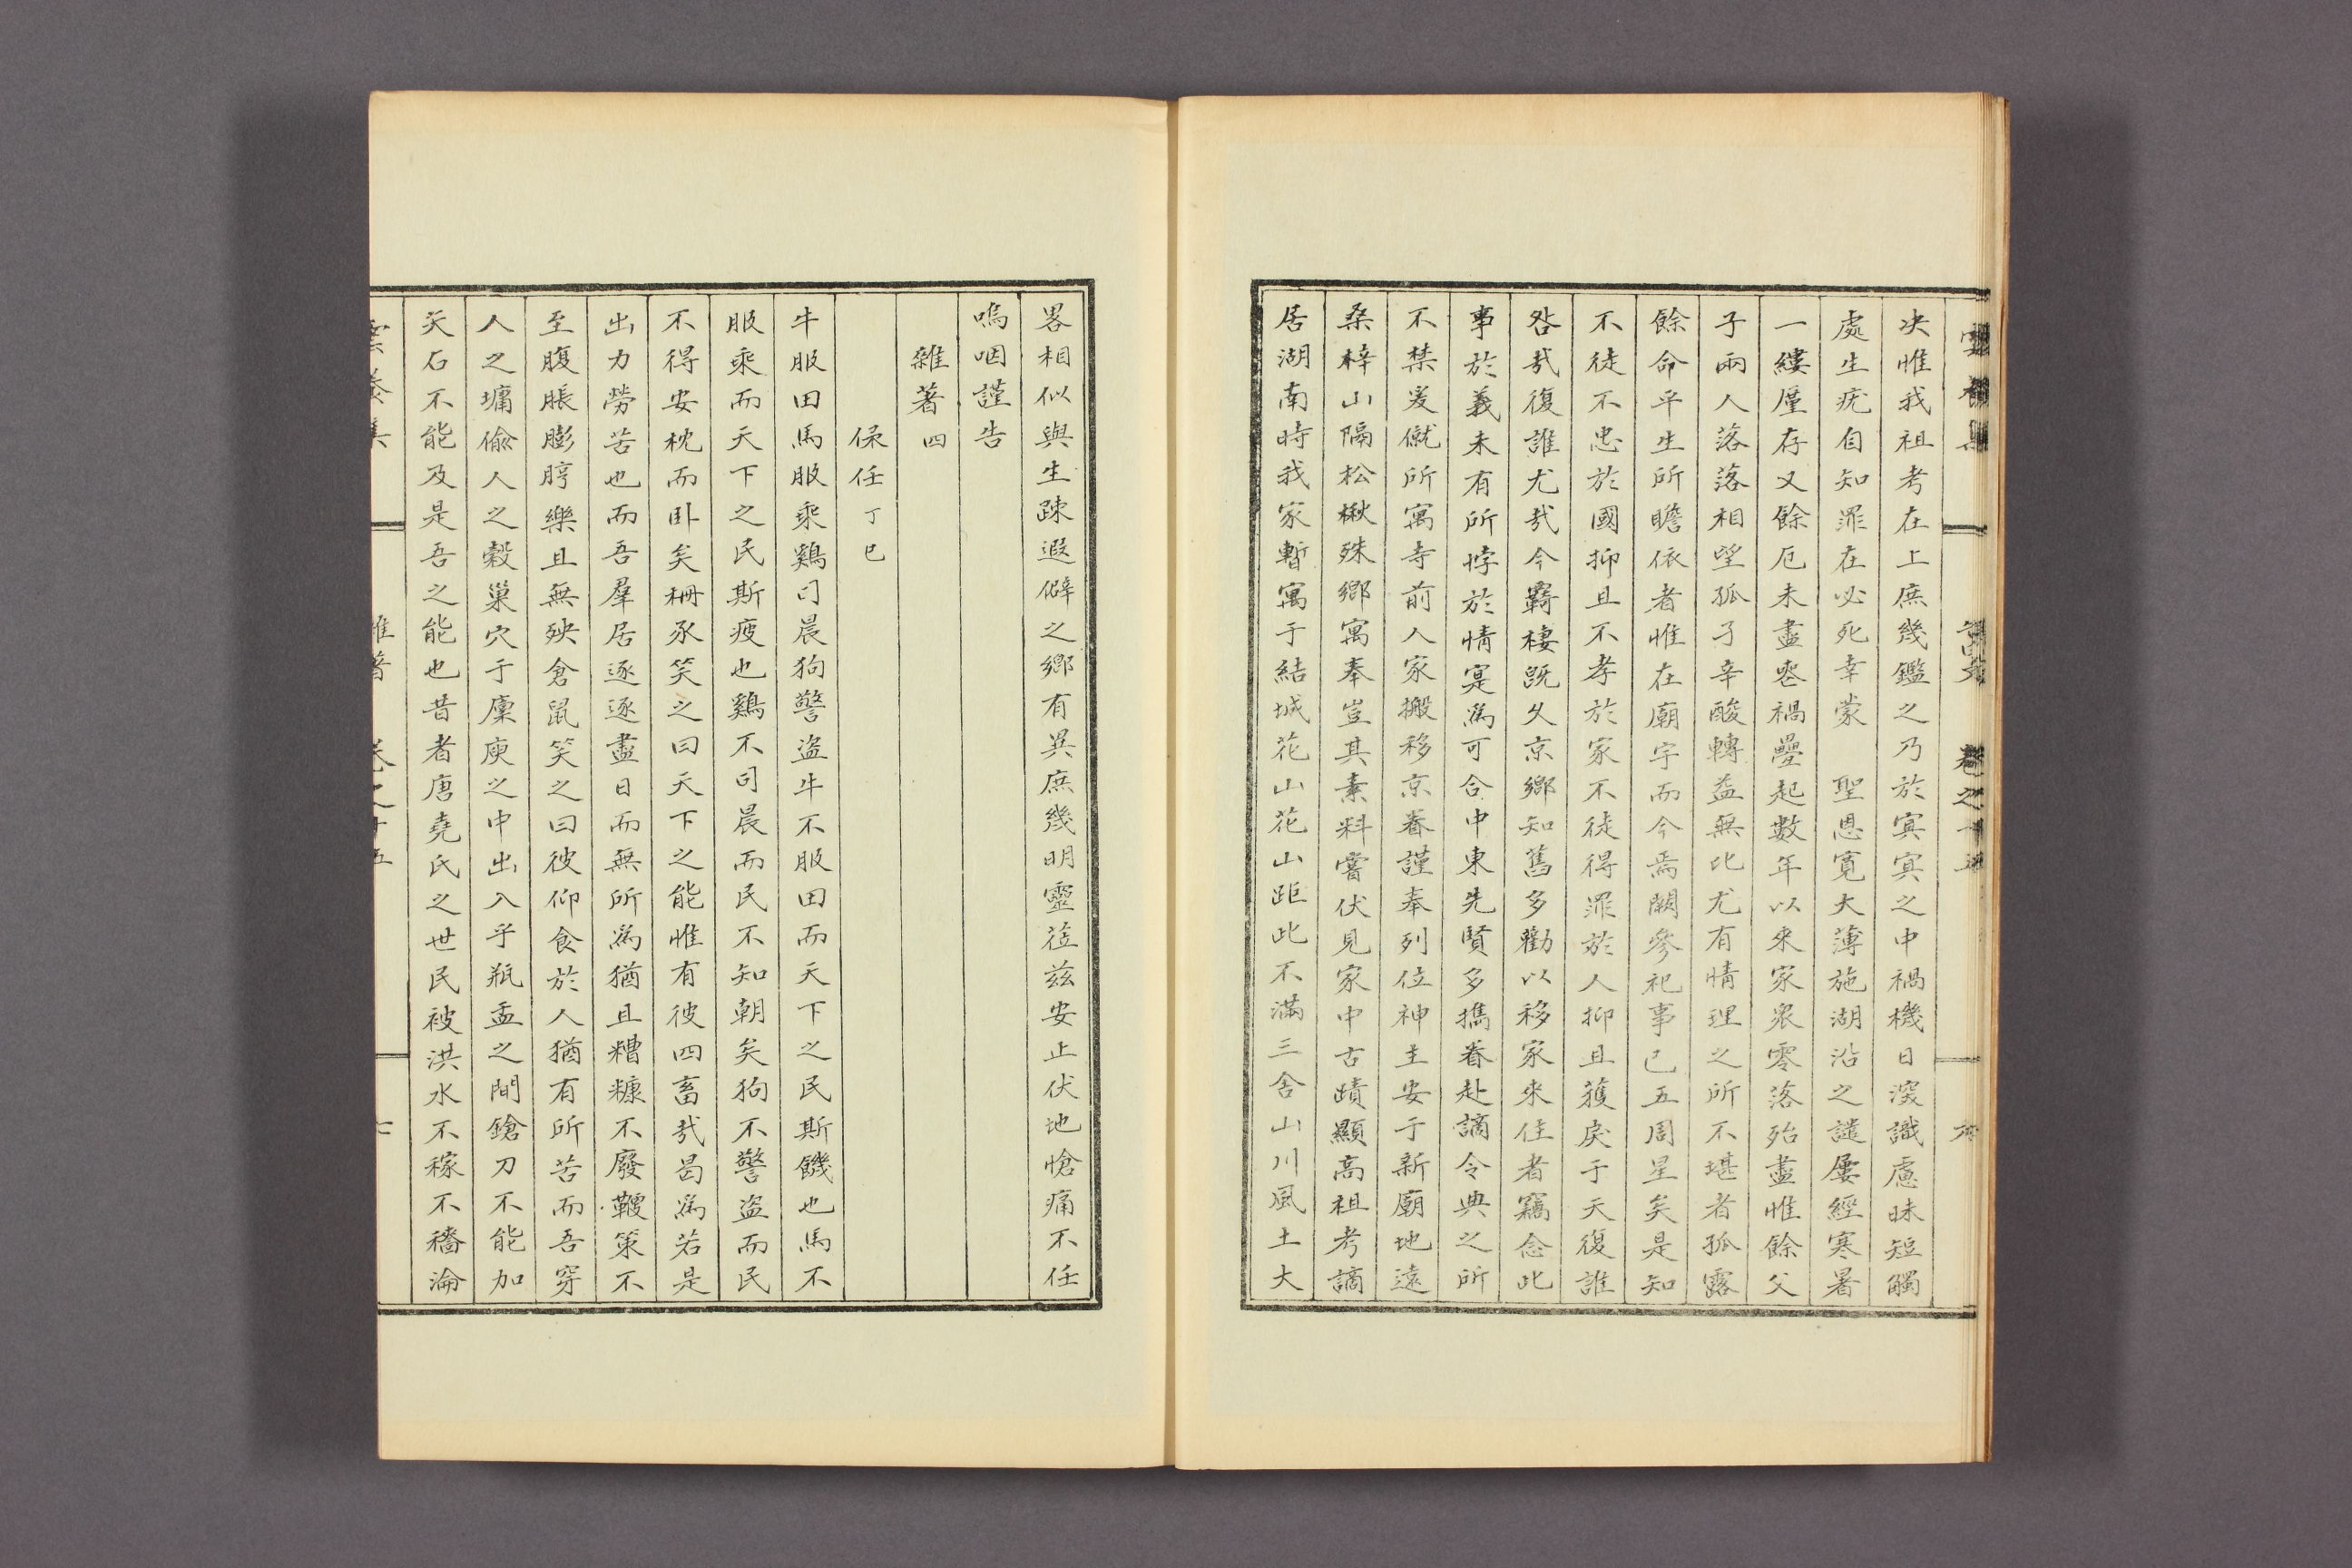 决惟我祖考在上庶幾鑑之乃於冥冥之中禍機日深識慮昧短觸
處生疣自知罪在必死幸蒙 聖恩寬大薄施湖沿之譴屢經寒暑
一縷厪存又餘厄未盡慼禍疊起數年以來家衆零落殆盡惟餘父
子兩人落落相望孤孑辛酸轉益無比尤有情理之所不堪者孤露
餘命平生所瞻依者惟在廟宇而今焉闕參祀事已五周星矣是知
不徒不忠於國抑且不孝於家不徒得罪於人抑且獲戾于天復誰
咎㢤復誰尤㢤今羇棲旣久京鄉知舊多多勸以移家來住者竊念此
事於義未有所悖於情寔爲可合中東先賢多携眷赴謫令典之所
不禁爰僦所寓寺前人家搬移京眷謹奉列位神主安于新廟地遠
桑梓山隔松楸殊鄉寓奉豈其素料嘗伏見家中古蹟顯高祖考謫
居湖南時我家暫寓于結城花山花山距此不滿三舍山川風土大
畧相似與生踈遐僻之鄉有異庶幾明靈莅兹安止伏地愴痛不任
嗚咽謹告
雜著四
保任丁巳
牛服田馬服乘鷄司晨狗警盜牛不服田而天下之民斯饑也馬不
服乘而天下之民斯疲也鷄不司晨而民不知朝矣狗不警盜而民
不得安枕而卧矣柵豕笑之曰天下之能惟有彼四畜㢤曷爲若是
出力勞苦也而吾羣居逐逐盡日而無所爲猶且糟糠不廢鞭策不
至腹脹膨脝樂且無殃倉鼠笑之曰彼仰食於人猶有所苦而吾穿
人之墉偸人之穀巢穴于廩庾之中出入乎瓶盂之間鎗刀不能加
矢石不能及是吾之能也昔者唐堯氏之世民被洪水不稼不穡淪